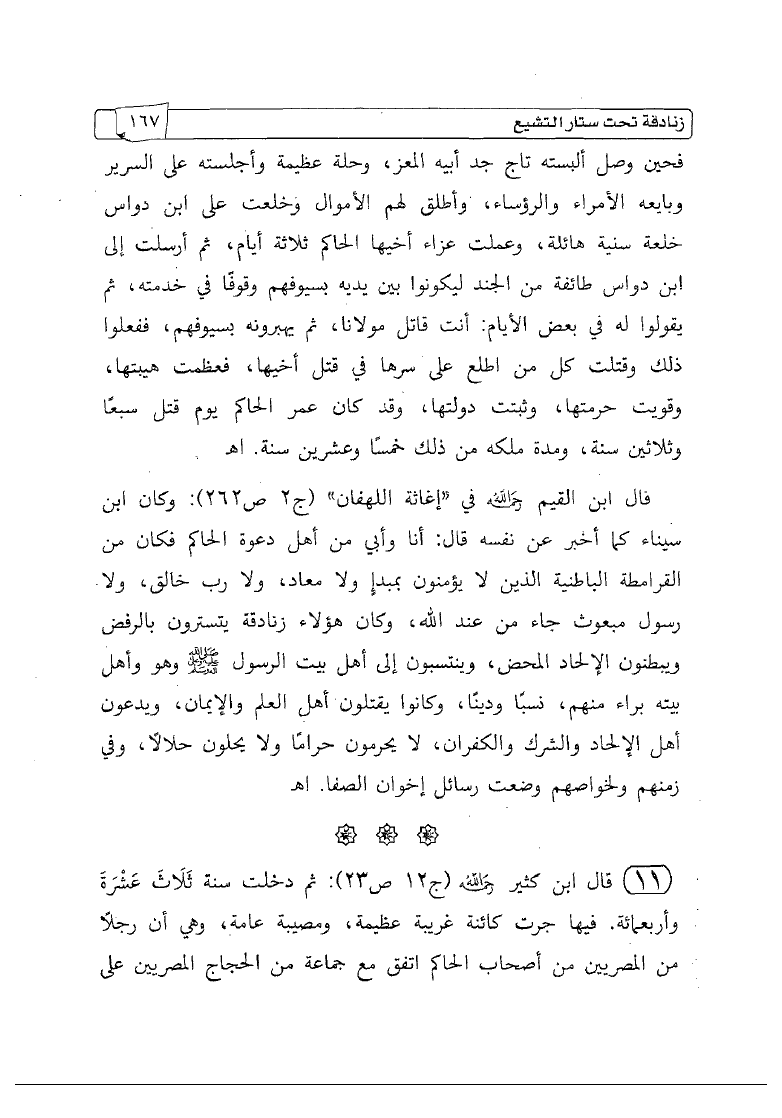 زنادقة تحت ستار التشيع
١٦٧
فحين وصل ألبسته تاج جد أبيه المعز، وحلة عظيمة وأجلسته على السرير
وبايعه الأمراء والرؤساء، وأطلق لهم الأموال وخلعت على ابن دواس
خلعة سنية هائلة، وعملت عزاء أخيها الحاكم ثلاثة أيام، ثم أرسلت إلى
ابن دواس طائفة من الجند ليكونوا بين يديه بسيوفهم وقوفًا في خدمته، ثم
يقولوا له في بعض الأيام: أنت قاتل مولانا، ثم يهبرونه بسيوفهم، ففعلوا
ذلك وقتلت كل من اطلع على سرها في قتل أخيها، فعظمت هيبتها،
وقويت حرمتها، وثبتت دولتها، وقد كان عمر الحاكم يوم قتل سبعًا
وثلاثين سنة، ومدة ملكه من ذلك خمسًا وعشرين سنة. اهـ
قال ابن القيم رحمه الله في «إغاثة اللهفان» (ج٢ ص٢٦٢): وكان ابن
سيناء كما أخبر عن نفسه قال: أنا وأبي من أهل دعوة الحاكم فكان من
القرامطة الباطنية الذين لا يؤمنون بمبدإ ولا معاد، ولا رب خالق، ولا
رسول مبعوث جاء من عند الله، وكان هؤلاء زنادقة يتسترون بالرفض
ويبطنون الإلحاد المحض، وينتسبون إلى أهل بيت الرسول ﷺ وهو وأهل
بيته براء منهم، نسبًا ودينًا، وكانوا يقتلون أهل العلم والإيمان، ويدعون
أهل الإلحاد والشرك والكفران، لا يحرمون حرامًا ولا يحلون حلالًا، وفي
زمنهم ولخواصهم وضعت رسائل إخوان الصفا. اهـ
(١١) قال ابن كثير رحمه الله (ج١٢ ص٢٣): ثم دخلت سنة ثَلَاثَ عَشْرَةَ
وأربعمائة. فيها جرت كائنة غريبة عظيمة، ومصيبة عامة، وهي أن رجلًا
من المصريين من أصحاب الحاكم اتفق مع جماعة من الحجاج المصريين على